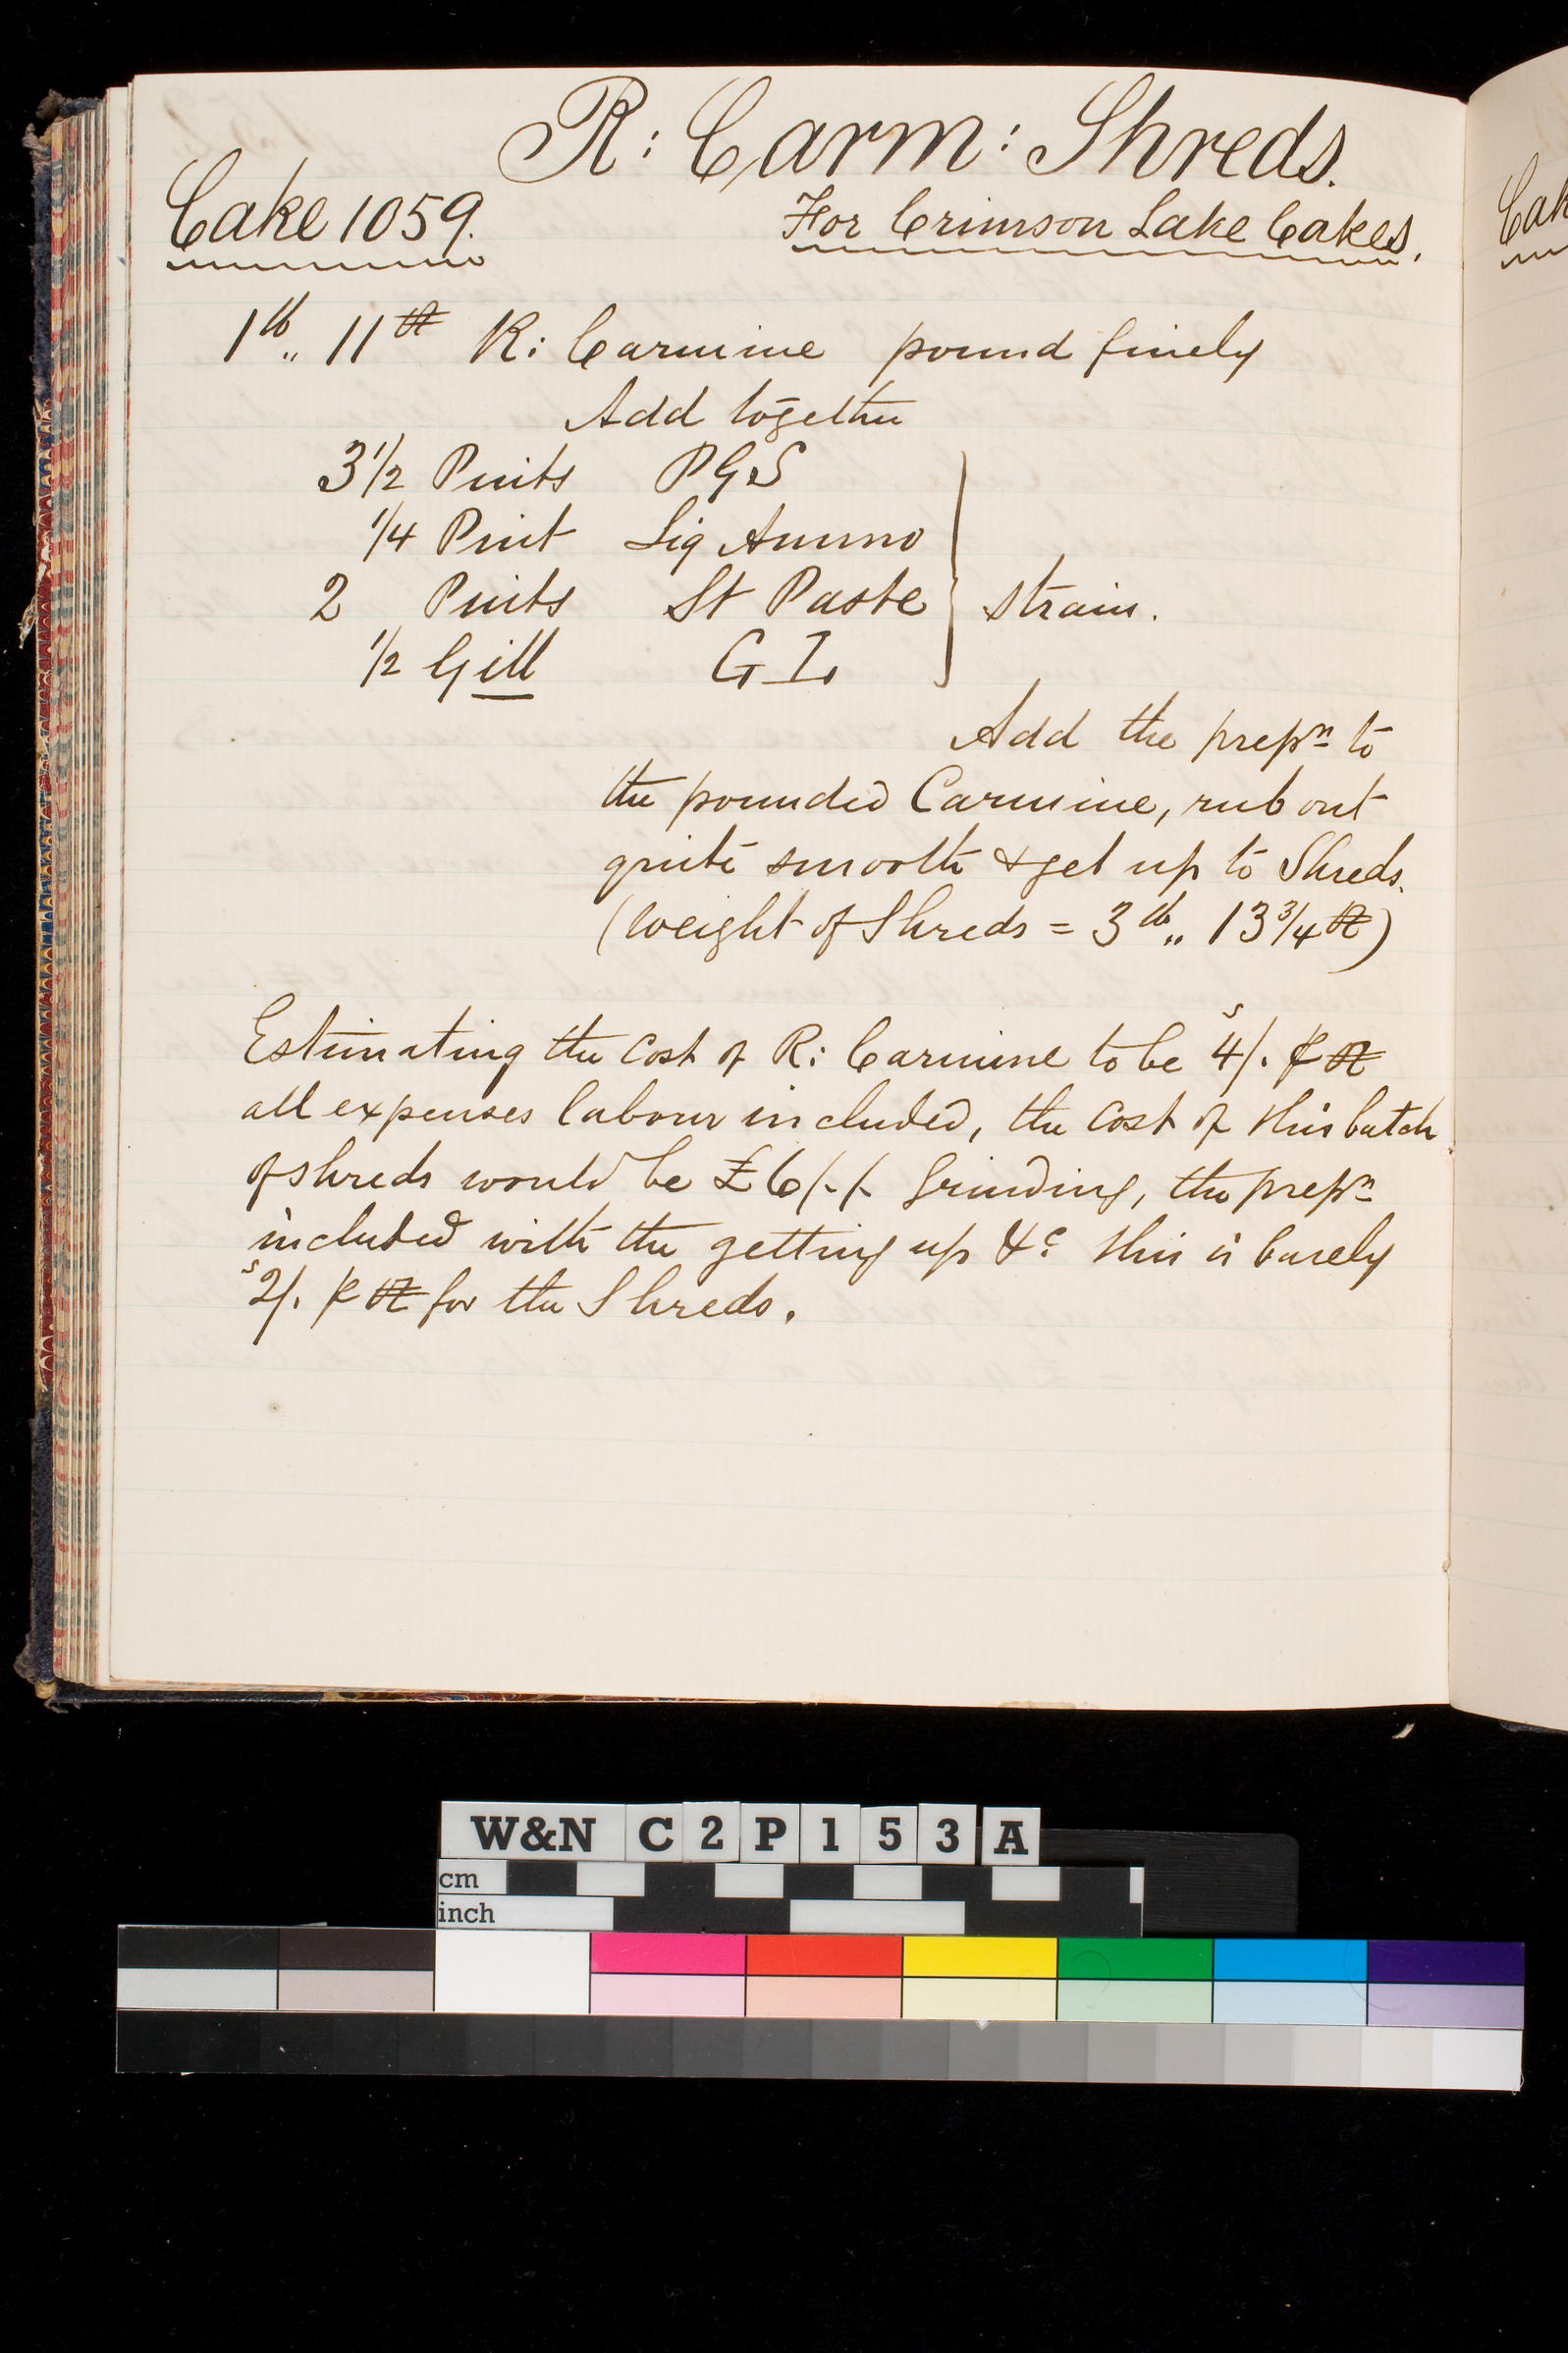 R: Carm: Shreds.
Cake 1059.
For Crimson Lake Cakes.
1 lb,, 11 oz R: Carmine pound finely
Add together
3 1/2 Pints PGS
1/4 Pint Liq Ammo
2 Pints St Paste } strain.
1/2 Gill G I.
Add the prepn to
the pounded Carmine, rub out
quite smooth & get up to Shreds.
(Weight of Shreds = 3 lb,, 13 3/4 oz)
Estimating the Cost of R: Carmine to be s4/. ⅌ oz
all expenses labour included, the Cost of this batch
of shreds would be £6/-/- Grinding, the prepn
included with the getting up &c this is barely
s2/. ⅌ oz for the Shreds.
Cak
W&N C2P153A
cm
inch